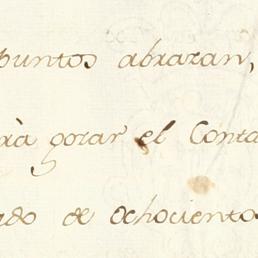 puntos abrazan,
rà gozar el Conta
ado de Ochociento